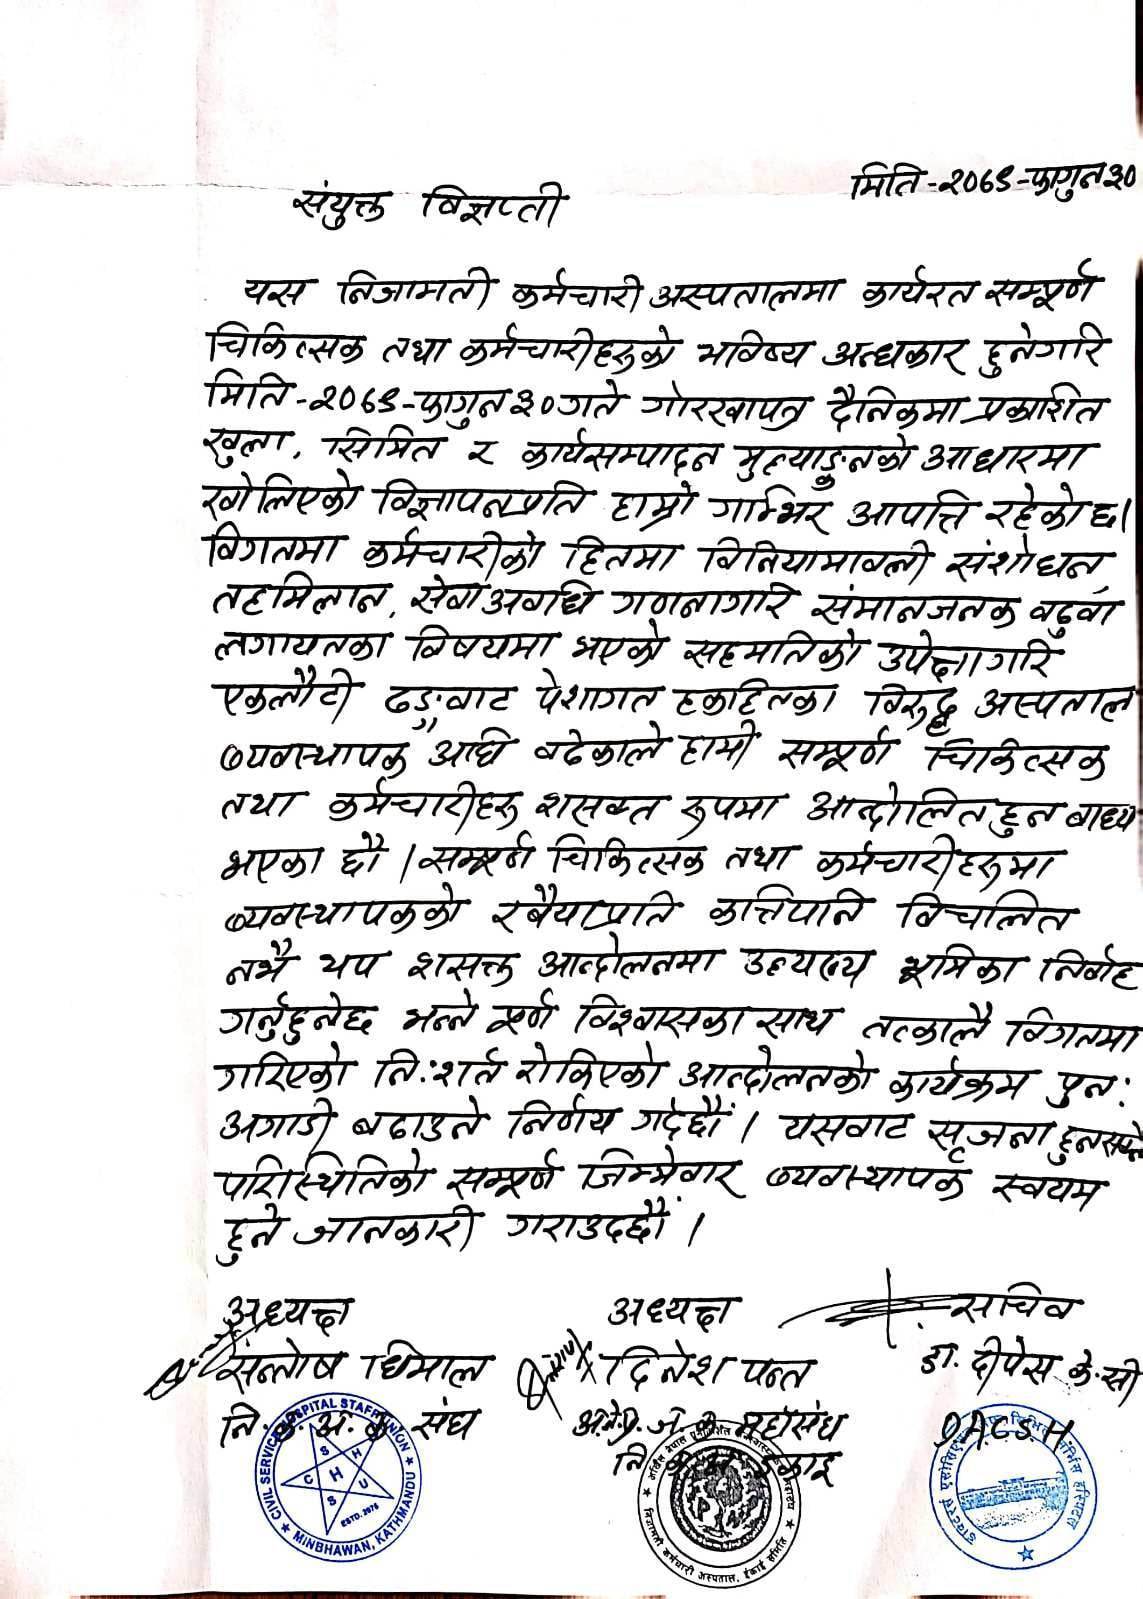 मिति-२०७९-फागुन३०
संयुक्त विज्ञप्ती
यस निजामती कर्मचारी अस्पतालमा कार्यरत सम्पूर्ण
चिकित्सक तथा कर्मचारीहरुको भविष्य अन्धकार हुनेगरि
मिति-२०७९-फागुन३०गते गोरखापत्र दैनिकमा प्रकाशित
खुला, सिमित र कार्यसम्पादन मुल्याङ्कनको आधारमा
खोलिएको विज्ञापनप्रति हाम्रो गाम्भिर आपत्ति रहेको छ।
विगतमा कर्मचारीको हितमा विनियामावली संशोधन,
तहमिलान, सेवा अवधि गणनागरि संमानजनक वढुवा
लगायतका विषयमा भएको सहमतिको उपेक्षागरि
एकलौटी ढङ्गवाट पेशागत हकहितका विरुद्ध अस्पताल
व्यवस्थापक अघि वढेकाले हामी सम्पूर्ण चिकित्सक
तथा कर्मचारीहरु शसक्त रुपमा आन्दोलित हुन वाध्य
भएका छौ। सम्पूर्ण चिकित्सक तथा कर्मचारीहरुमा
व्यवस्थापकको रवैयाप्रति कत्तिपनि विचलित
नभै थप शसक्त आन्दोलनमा उल्यख्य भूमिका निर्वाह
गर्नुहुनेछ भन्ने पूर्ण विश्वासका साथ तत्कालै विगतमा
गरिएको नि:शर्त रोकिएको आन्दोलनको कार्यक्रम पुन:
अगाडी बढाउने निर्णय गर्दछौं। यसवाट सृजना हुनसक्ने
परिस्थितिको सम्पूर्ण जिम्मेवार व्यवस्थापक स्वयम
हुने जानकारी गराउदछौं।
अध्यक्ष अध्यक्ष सचिव
सन्तोष धिमाल दिनेश पन्त डा. दीपेस के.सी
नि.क.अ.क. संघ अ.ने.प्र.ज.क. महासंघ D.A.C.S.H
नि क अ इकाइ
CIVIL SERVICE HOSPITAL STAFF UNION
CHHUSS
ESTD. 2076
MINBHAWAN, KATHMANDU
अखिल नेपाल
निजामती कर्मचारी अस्पताल, ईकाई समिति
डाक्टर्स एसोसिएसन अफ सिभिल सर्भिस हस्पिटल